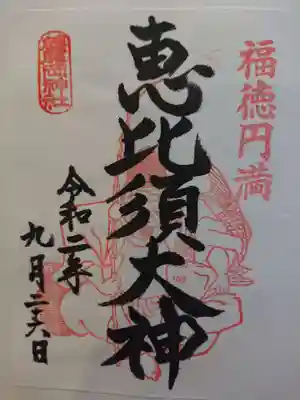 福徳円満
恵比須大神
令和二年
九月二十六日
神社